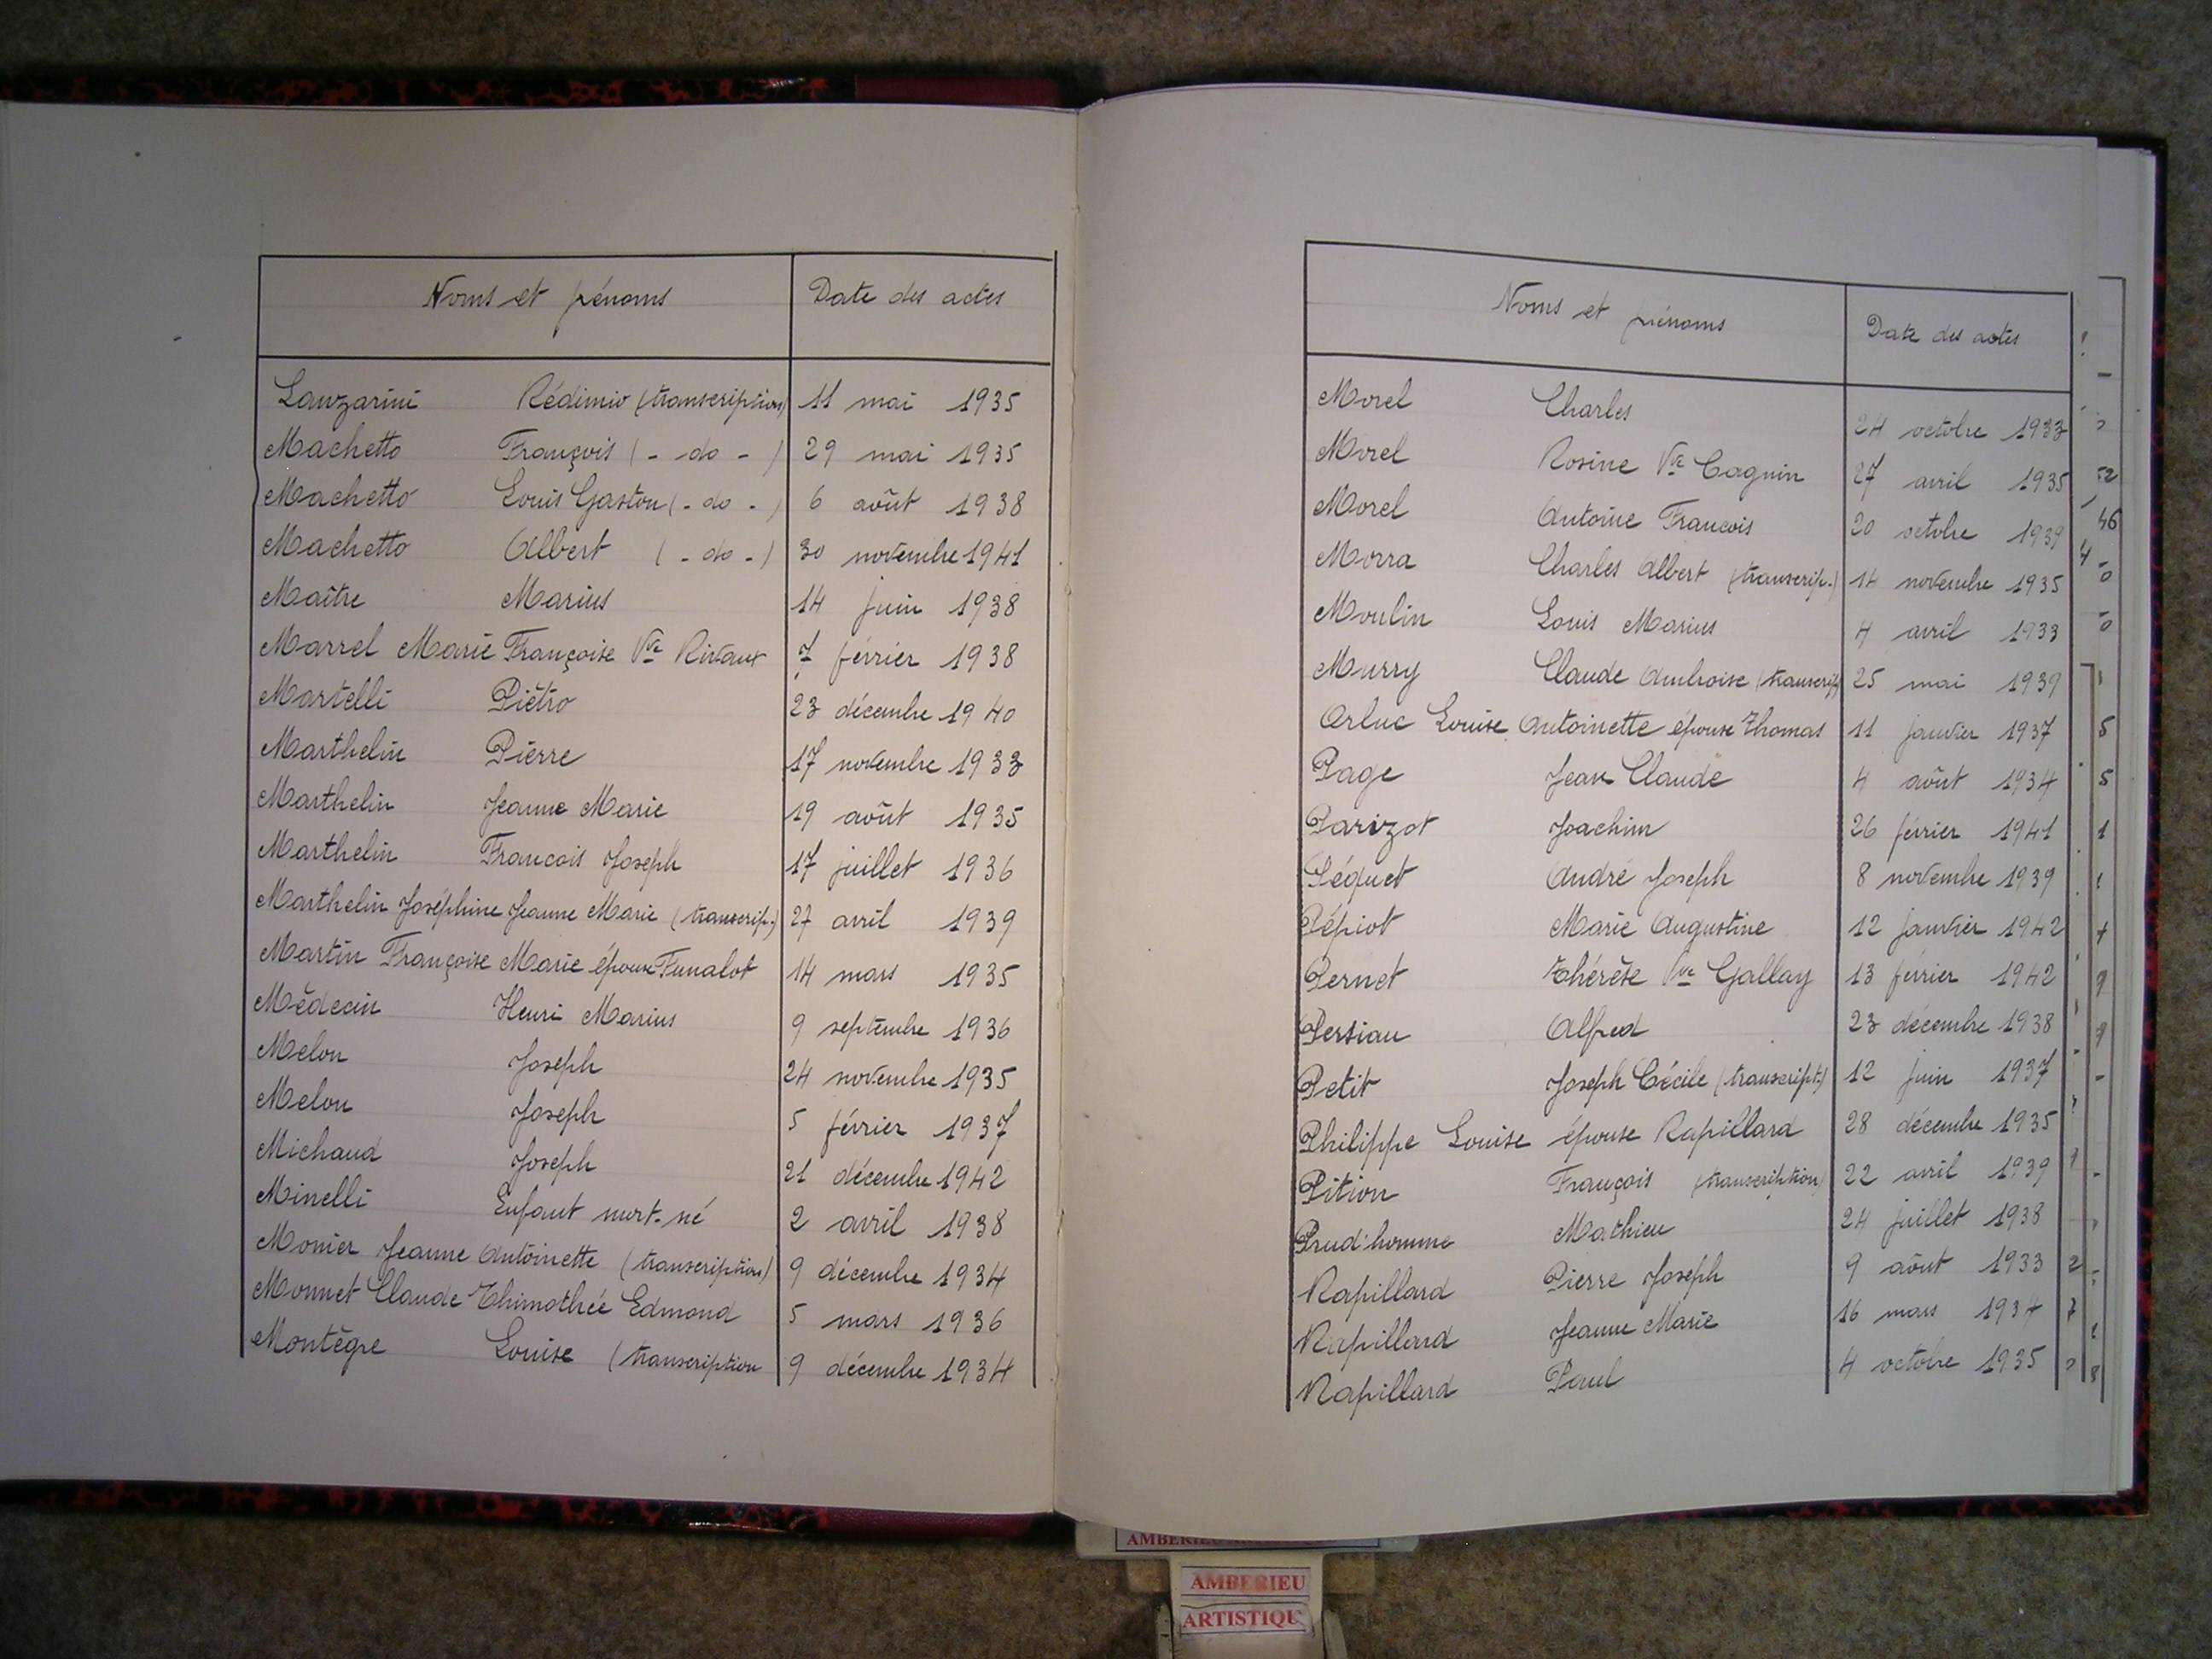 Noms et prénoms Date des actes
Lanzarini Rédimio (transcription) 11 mai 1935
Machetto François (- do -) 29 mai 1935
Machetto Louis Gaston (- do -) 6 août 1938
Machetto Albert (- do -) 30 novembre 1941
Maître Marius 14 juin 1938
Marrel Marie Françoise Vve Rivaux 7 février 1938
Martelli Piétro 23 décembre 1940
Marthelin Pierre 17 novembre 1933
Marthelin Jeanne Marie 19 août 1935
Marthelin Francois Joseph 17 juillet 1936
Marthelin Joséphine Jeanne Marie (transcrip.) 27 avril 1939
Martin Françoise Marie épouse Funalot 14 mars 1935
Médecin Henri Marius 9 septembre 1936
Melon Joseph 24 novembre 1935
Melon Joseph 5 février 1937
Michaud Joseph 21 décembre 1942
Minelli Enfant mort-né 2 avril 1938
Monier Jeanne Antoinette (transcription) 9 décembre 1934
Monnet Claude Thimothée Edmond 5 mars 1936
Montègre Louise (transcription 9 décembre 1934
Noms et prénoms Date des actes
Morel Charles 24 octobre 1933
Morel Rosine Vve Cagnin 27 avril 1935
Morel Antoine Francois 20 octobre 1939
Morra Charles Albert (transcrip.) 14 novembre 1935
Moulin Louis Marius 4 avril 1933
Murry Claude Ambroise (transcrip) 25 mai 1939
Orluc Louise Antoinette épouse Thomas 11 janvier 1937
Page Jean Claude 4 août 1934
Parizot Joachim 26 février 1941
Péquet André Joseph 8 novembre 1939
Pépiot Marie Augustine 12 janvier 1942
Pernet Thérèse Vve Gallay 13 février 1942
Persiau Alfred 23 décembre 1938
Petit Joseph Cécile (transcript.) 12 juin 1937
Philippe Louise épouse Rapillard 28 décembre 1935
Pition François (transcription) 22 avril 1939
Prud'homme Mathieu 24 juillet 1938
Rapillard Pierre Joseph 9 août 1933
Rapillard Jeanne Marie 16 mars 1934
Rapillard Paul 4 octobre 1935
AMBERIEU
ARTISTIQU